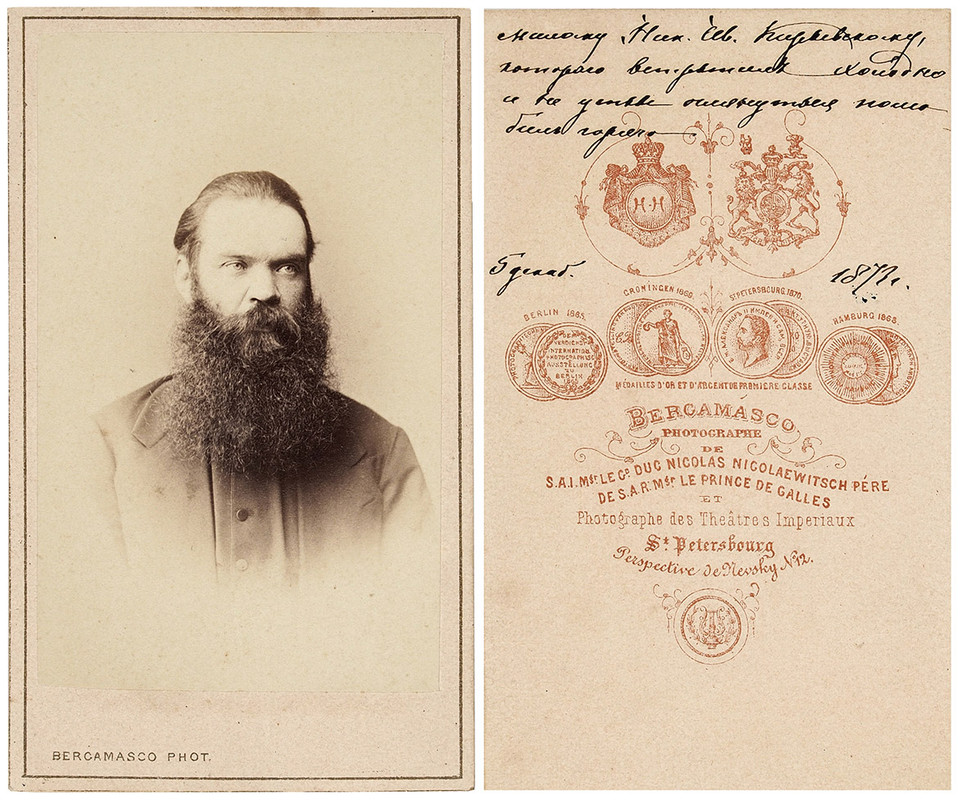 BERGAMASCO PHOT.
милому Ник. Ив.
котораго встретилъ холодно
и не успѣлъ оглянуться
5 декаб. 187
H·H
BERLIN 1865.
GRONINGEN 1869.
ST PETERSBOURG. 1870.
HAMBURG 1868.
MÉDAILLES D'OR ET D'ARGENT DE PREMIERE CLASSE
BERGAMASCO
PHOTOGRAPHE
DE
S.A.I. Msr LE Gd DUC NICOLAS NICOLAEWITSCH PÉRE
DE S.A.R. Msr LE PRINCE DE GALLES
ET
Photographe des Theâtres Imperiaux
St Petersbourg
Perspective de Nevsky No 12.